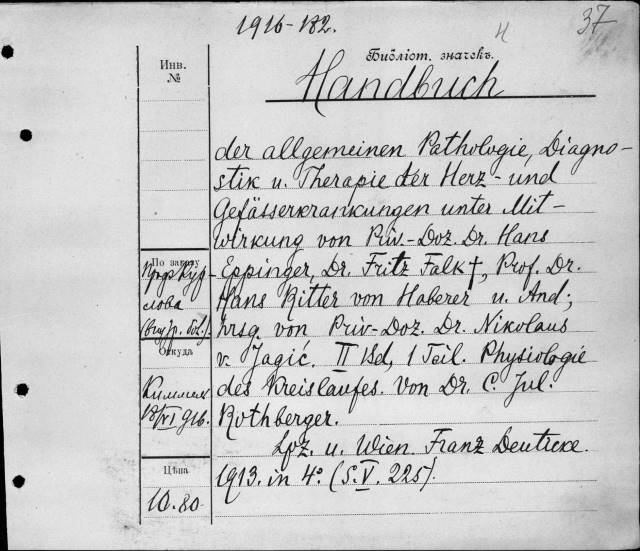 1916-182.
37
Библіот. значекъ.
Инв.
№
Handbuch
der allgemeinen Pathologie, Diagno-
stik u. Therapie der Herz- und
Gefässerkrankungen unter Mit-
wirkung von Priv.-Doz. Dr. Hans
Eppinger, Dr. Fritz Falk †, Prof. Dr.
Hans Ritter von Haberer u. And;
hrsg. von Priv-Doz. Dr. Nikolaus
v. Jagić. II Bd, 1 Teil. Physiologie
des Kreislaufes. Von Dr. C. Jul.
Rothberger.
Lpz. u. Wien. Franz Deuticke.
1913. in 4º (S. V. 225).
По заказу
Проф Кур-
лова
Откуда
Киммель
Цѣна
10.80